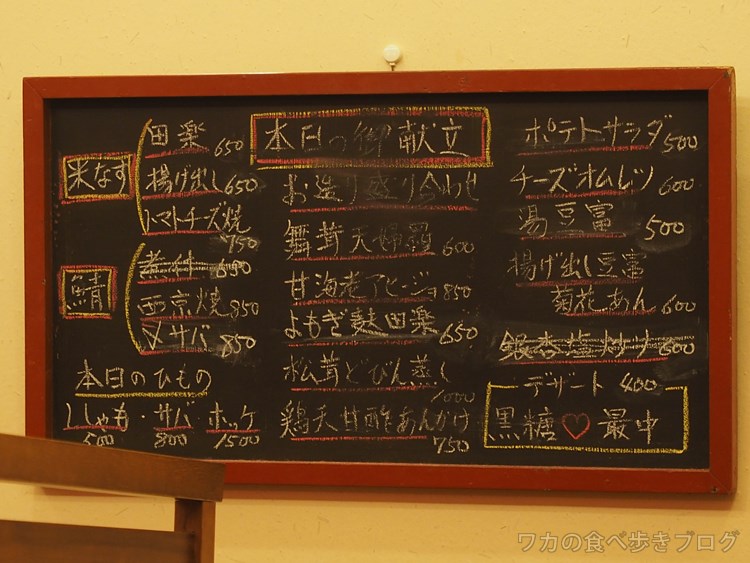 米なす
田楽 650
揚げ出し 650
トマトチーズ焼 750
鯖
煮付 600
西京焼 850
〆サバ 850
本日のひもの
ししゃも・サバ ホッケ
500 800 1500
本日の御献立
お造り盛り合わせ
舞茸天婦羅 600
甘海老アヒージョ 850
よもぎ麩田楽 650
松茸どびん蒸し 1000
鶏天甘酢あんかけ 750
ポテトサラダ 500
チーズオムレツ 600
湯豆富 500
揚げ出し豆富
菊花あん 600
銀杏塩炒り 600
デザート 400
黒糖♡最中
ワカの食べ歩きブログ